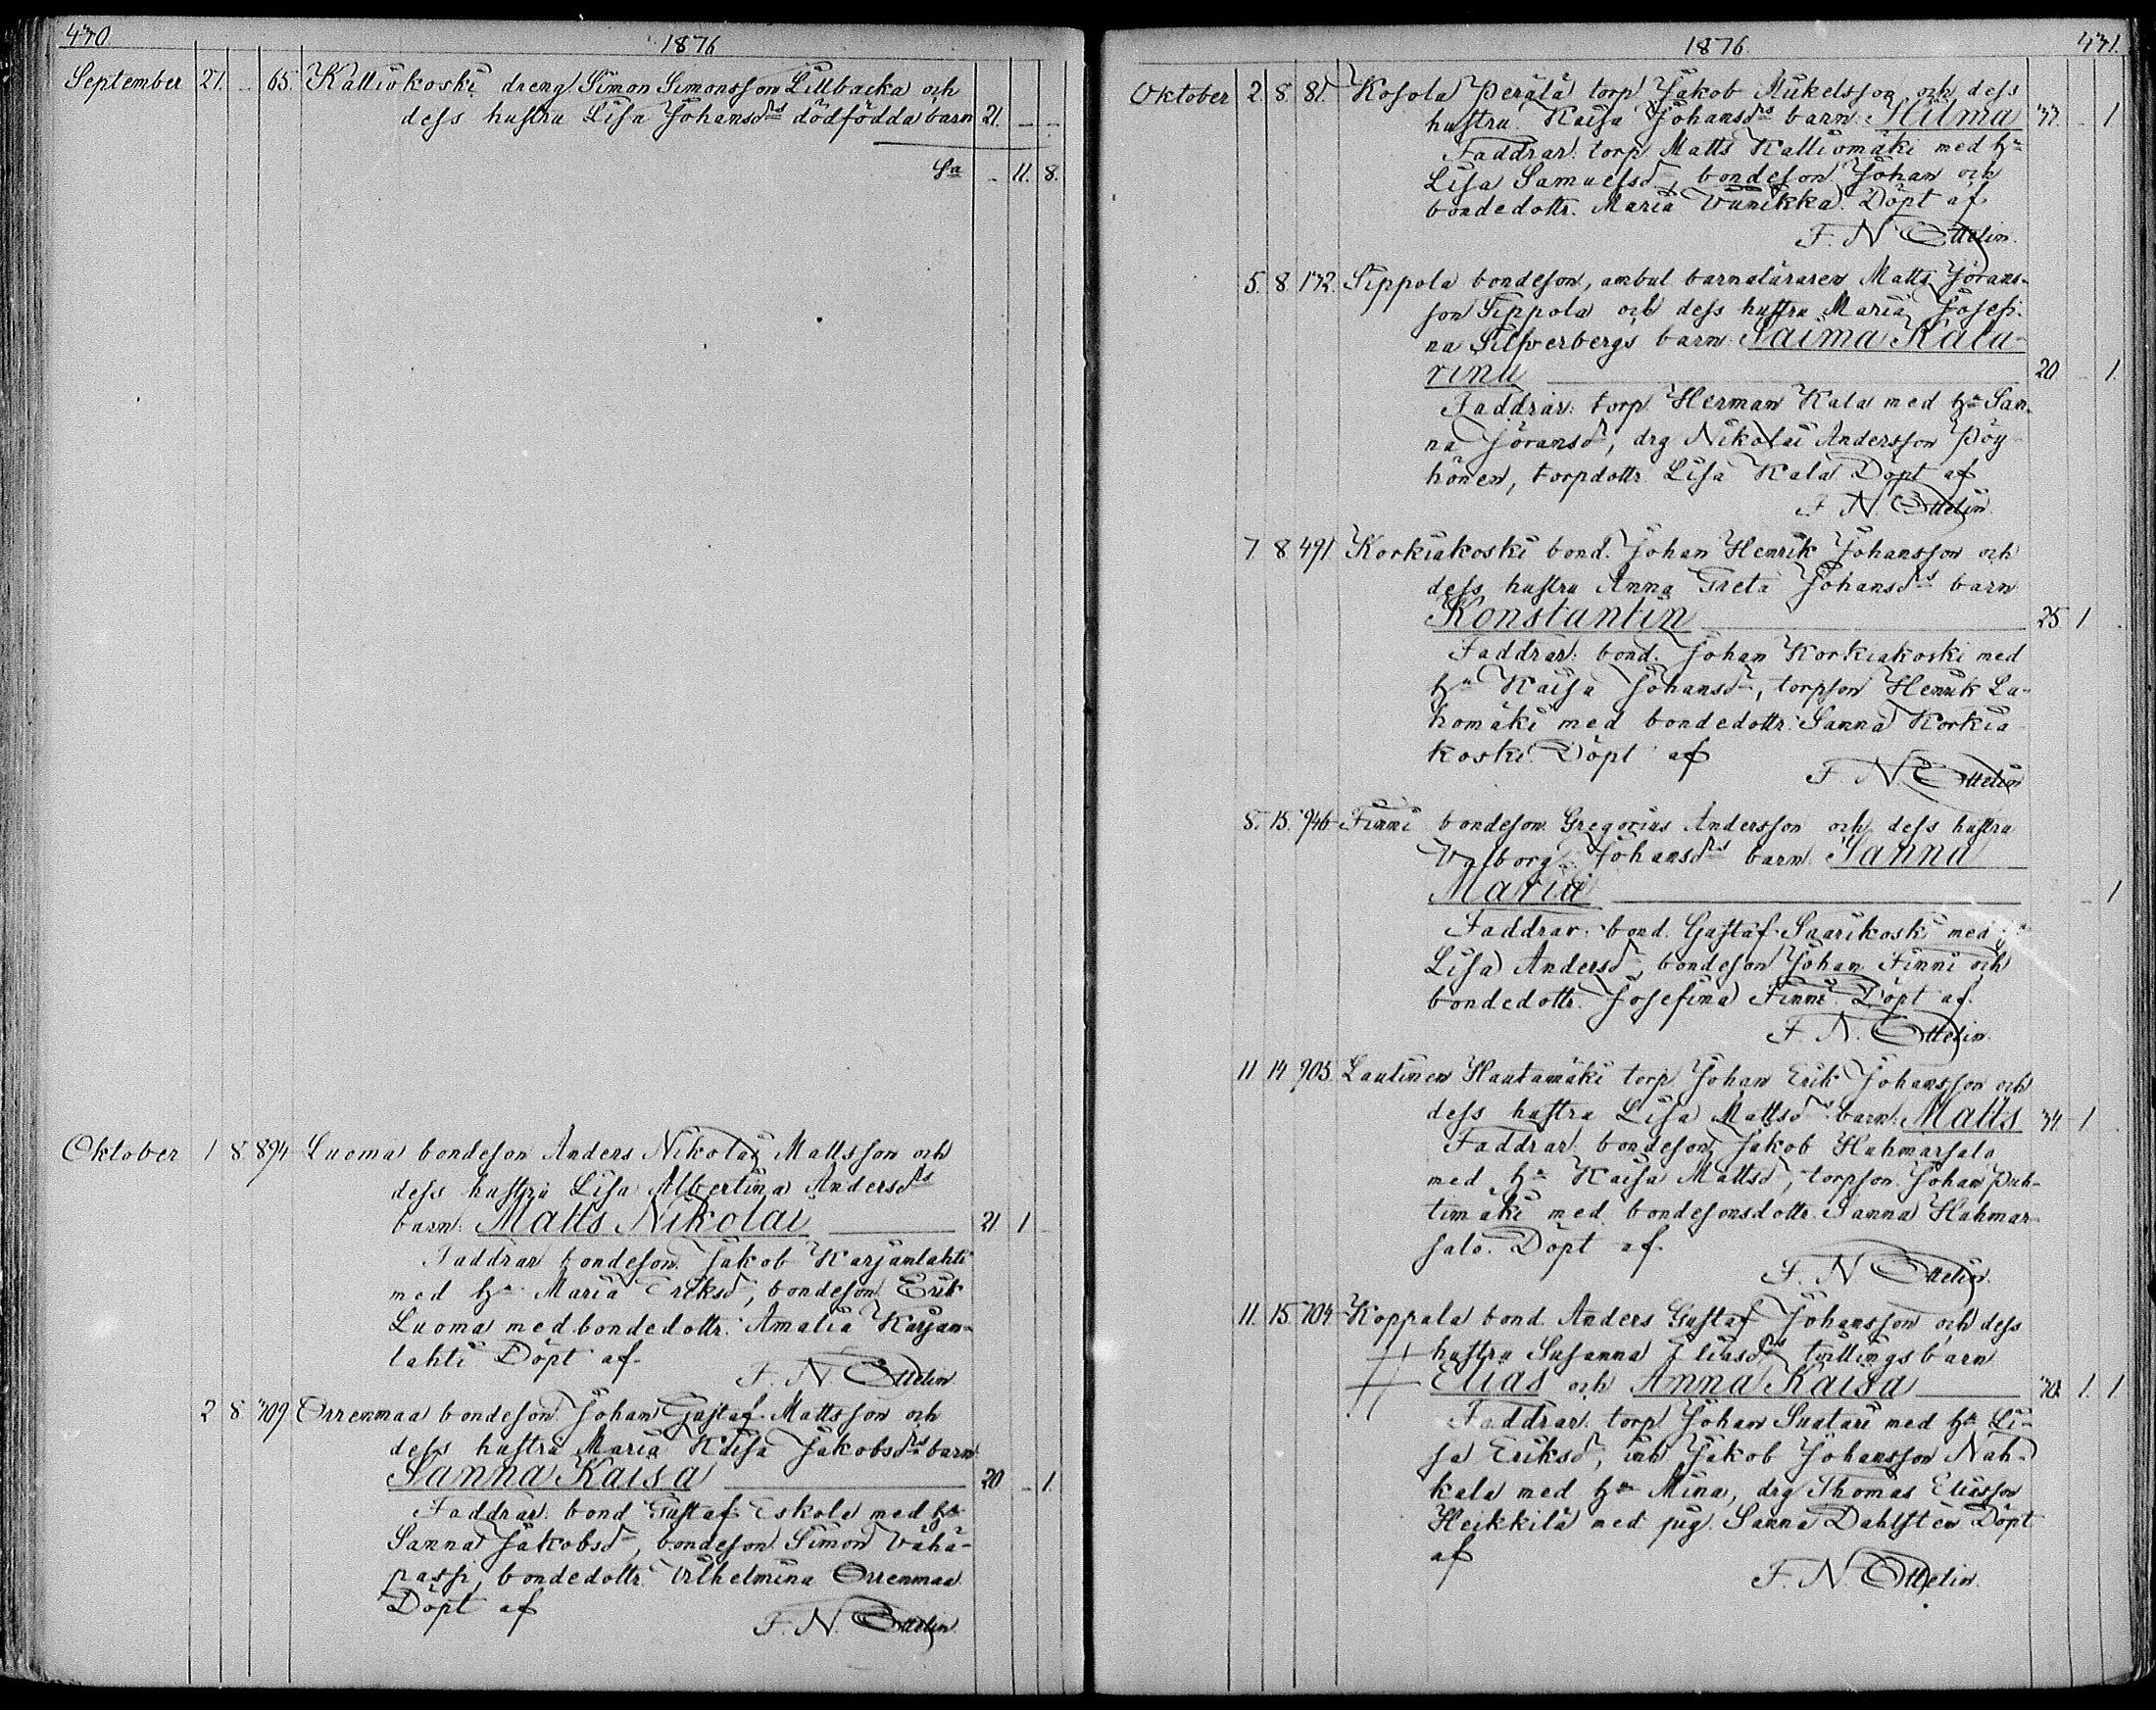 470.
1876
September 27. - 65. Kalliokoski dreng Simon Simonsson Lillbacka och
dess hustru Lisa Johansdrs dödfödda barn 21. - -
Sa - 11. 8.
Oktober 1 8 894 Luoma bondeson Anders Nikolai Mattsson och
dess hustru Lisa Albertina Andersdrs
barn: Matts Nikolai 21. 1 -
Faddrar bondeson Jakob Karjanlahti
med hu Maria Eriksdr, bondeson Erik
Luoma med bondedottr. Amalia Karjan-
lahti Döpt af
F. N. Ottelin.
2 8 709 Orrenmaa bondeson Johan Gustaf Mattsson och
dess hustru Maria Kaisa Jakobsdrs barn
Sanna Kaisa 20 - 1.
Faddrar: bond Gustaf Eskola med hu
Sanna Jakobsdr, bondeson Simon Vähä-
passi, bondedottr. Vilhelmina Orrenmaa
Döpt af
F. N. Ottelin.
1876.
471.
Oktober 2. 8. 81. Kosola Perälä torp Jakob Mikelsson och dess
hustru Kaisa Johansdrs barn Hilma 37. - 1
Faddrar: torp Matts Kalliomäki med hu
Lisa Samuelsdr, bondeson Johan och
bondedottr. Maria Vunikka. Döpt af
F. N. Ottelin.
5. 8. 172. Sippola bondeson, ambul barnaläraren Matts Jörans-
son Sippola och dess hustru Maria Josefi-
na Silfverbergs barn: Saima Kata-
rina 20 - 1.
Faddrar: torp Herman Kala med hu San-
na Jöransdr, drg Nikolai Andersson Pöy-
hönen, torpdottr Lisa Kala Döpt af
F. N. Ottelin.
7 8 491 Korkiakoski bond. Johan Henrik Johansson och
dess hustru Anna Greta Johansdrs barn
Konstantin 25 1 -
Faddrar: bond. Johan Korkiakoski med
hu Kaisa Johansdr, torpson Henrik La-
homäki med bondedottr. Sanna Korkia
koski Döpt af
F. N. Ottelin
8. 15. 946 Finni bondeson Gregorius Andersson och dess hustru
Valborg Johansdrs barn Sanna
Maria - 1
Faddrar: bond. Gustaf Saarikoski med hu
Lisa Andersdr, bondeson Johan Finni och
bondedottr. Josefina Finni. Döpt af
F. N. Ottelin.
11 14 905. Lautinen Hautamäki torp Johan Erik Johansson och
dess hustru Lisa Mattsdrs barn: Matts 34. 1 -
Faddrar bondeson Jakob Hahmarsalo
med hu Kaisa Mattsdr, torpson Johan Puh-
timäki med bondesonsdottr. Sanna Hahmar-
salo. Döpt af
F. N. Ottelin.
11. 15. 704 Koppala bond Anders Gustaf Johansson och dess
hustru Susanna Eliasdrs tvillingsbarn
Elias och Anna Kaisa 1. 1
Faddrar: torp Johan Suatari med hu Li-
sa Eriksdr, inh Jakob Johansson Nah-
kala med hu Mina, drg Thomas Eliasson
Heikkilä med pig. Sanna Dahlsten Döpt
af
F. N. Ottelin.